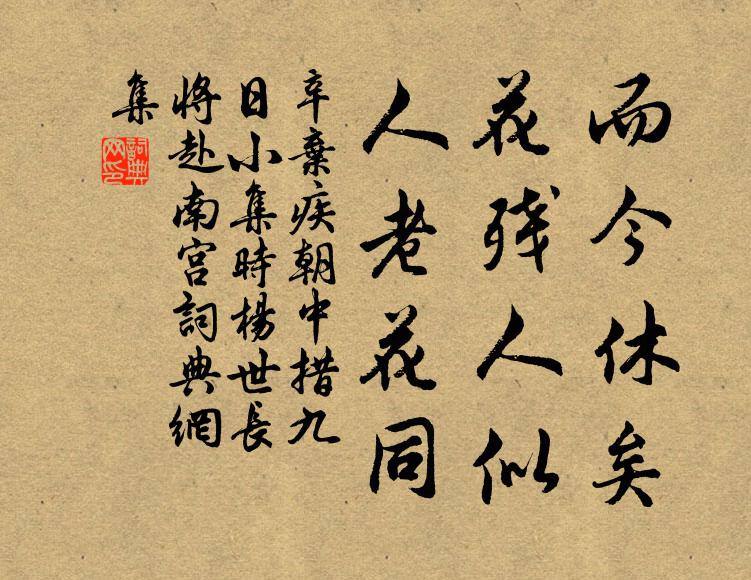 而今休矣
花残人似
人老花同
辛棄疾朝中措九
日小集時楊世長
將赴南宫詞典網
集
詞典網印